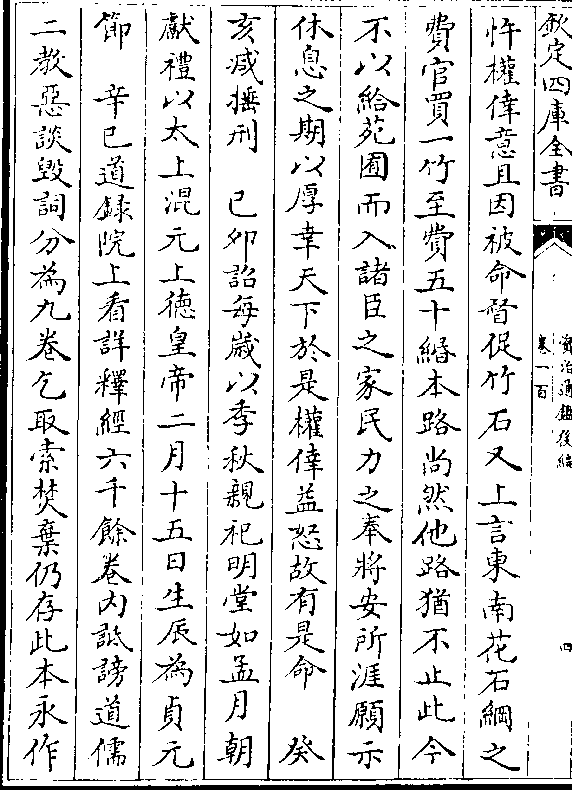 欽定四庫全書
資治通鑑後編
卷一百
四
忤權倖意且因被命督促竹石又上言東南花石綱之
費官買一竹至費五十緡本路尚然他路猶不止此今
不以給苑囿而入諸臣之家民力之奉將安所涯願示
休息之期以厚幸天下於是權倖益怒故有是命　癸
亥減捶刑　己卯詔每歲以季秋親祀明堂如孟月朝
獻禮以太上混元上徳皇帝二月十五日生辰為貞元
節　辛巳道録院上看詳釋經六千餘卷内詆謗道儒
二教惡談毀詞分為九卷乞取索焚棄仍存此本永作